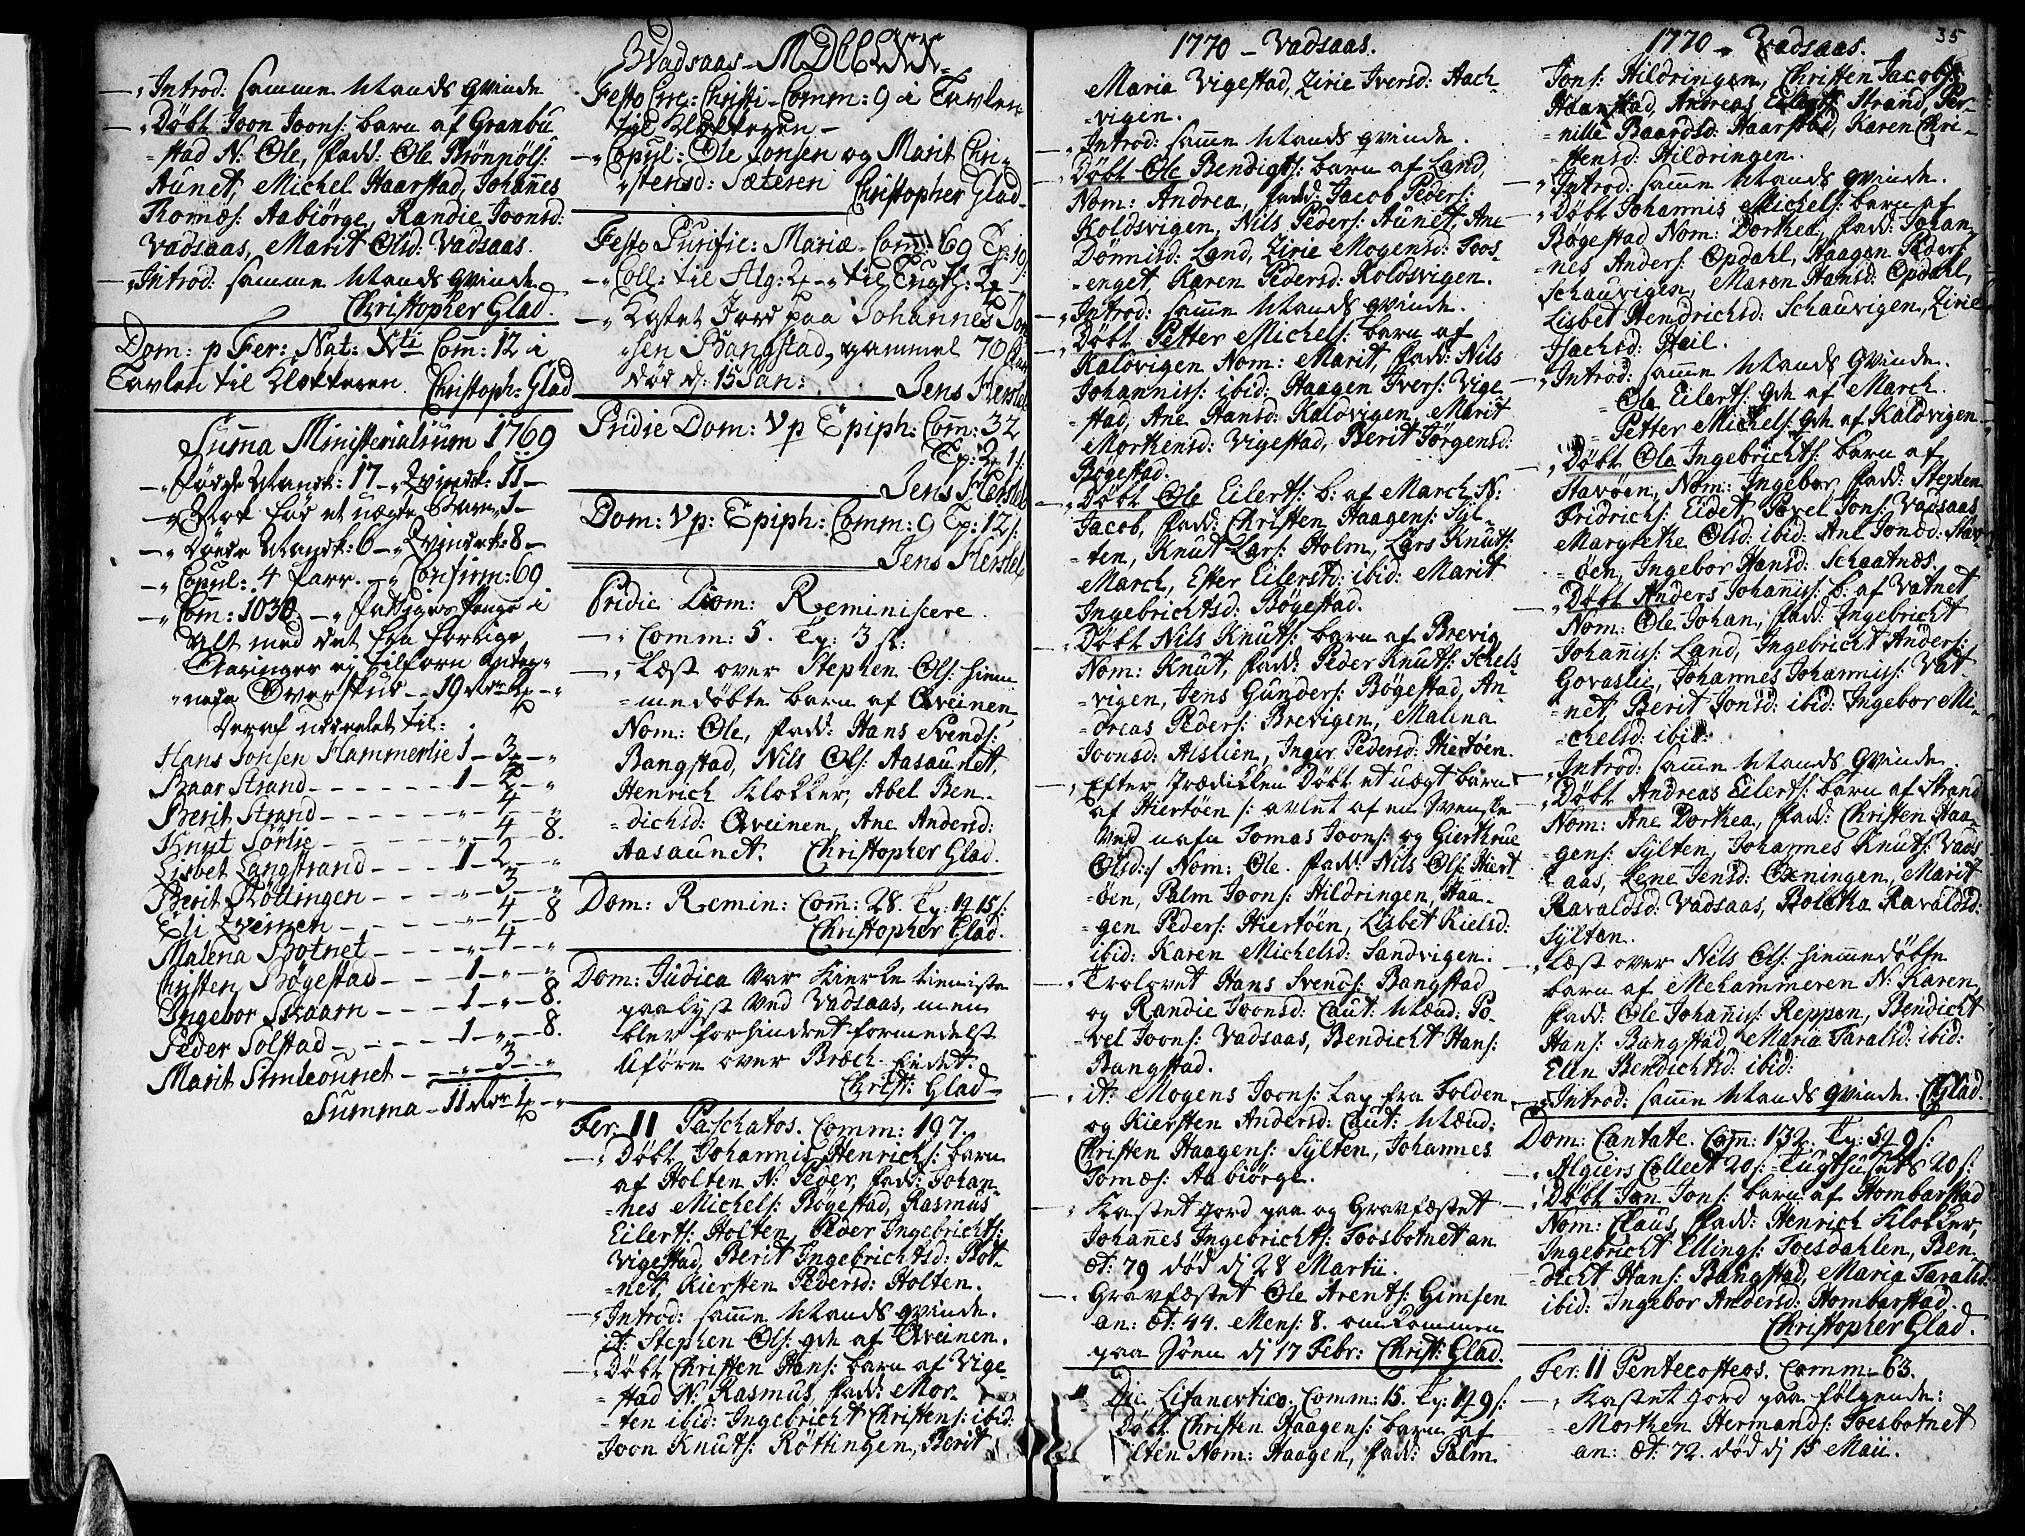 -„ Introd: samme Mands qvinde
-„ Døbt Joon Joons: barn af Granbu-
=stad N: Ole, fadd: Ole Brønnöls:
Aunet, Michel Haarstad, Johannes
Tomæs: Aabiörge, Randie Joonsd:
Vadsaas, Marit Olsd: Vadsaas.
-„ Introd: samme Mands qvinde.
Christopher Glad.
Dom: p Fer: Nat: Xti Com: 12 i
Tavlen til Klokkeren. Christoph: Glad
Suma Ministerialium 1769
-„ fødde Mandk: 17 -„ Qvindk: 11 -
-„ Nok fød et uægte Barn 1 -
-„ Døede Mandk: 6 -„ Qvindek: 8 -
-„ Copul: 4 Parr. -„ Confirm: 69
-„ Com: 1030 -„ fattiges Penge i
Alt med det fra forrige
Aaringer ej tilforn anteg-
nede Overskud - 19 Rdr 2 - „
Deraf uddeelet til:
Hans Jonsen Hammerlie 1 - 3 - „
Baar Strand - - - 1 - 2 - „
Berit Strand - - - „ - 4 - „
Knut Sørlie - - - „ - 4 - 8.
Lisbet Langstrand - - - 1 - 2 - „
Berit Röttingen - - - „ - 3 - „
Eli Qveinen - - - „ - 4 - 8
Malena Botnet - - - „ - 4 - „
Christen Bøgestad - - - 1 - „ - „
Ingebor Skaarn - - - 1 - „ - 8.
Peder Solstad - - - 1 - „ - 8.
Marit Simleounet - - „ - 3 - „
Summa - 11 Rdr 1 - „
Vadsaas - MDCCLXX
Festo Circ: Christi - Comm: 9 i Tavlen
til Klokkeren -
-„ Copul: Ole Jonsen og Marit Chri-
stensd: Sæteren Christopher Glad
Festo Purific: Mariæ - Com: 69 Tp: 19
-„ Coll: til Alg: 2 -„ til Tugth: 2
-„ Kastet Jord paa Johannes Jon
sen Bangstad, gammel 70 Aar
død d: 15 Jan: Jens Hersleb
Pridie Dom: V p Epiph: Comm: 32
Tp: 2 1s:
Jens Hersleb
Dom: V p: Epiph: Comm: 9 Tp: 12s:
Jens Hersleb
Pridie Dom: Reminiscere
-„ Comm: 5. Tp: 3 s:
-„ Læst over Stephen Ols: hiem-
=medøbte barn af Qveinen
Nom: Ole, fadd: Hans Svends:
Bangstad, Nils Ols: Aasaunet,
Henrich Klokker, Abel Ben-
=dichsd: Qveinen, Ane Andersd:
Aasaunet. Christopher Glad.
Dom: Remin: Com: 28. Tp: 1 15s:
Christopher Glad.
Dom: Judica var Kierke tienniste
paalyst ved Vadsaas, men
blev forhindret formedelst
Uføre over Bræch-Eidet.
Christ: Glad -
Fer: II Paschatos. Comm: 197.
-„ Døbt Johannis Henrichs: barn
af Holten N: Peder, fadd: Johan-
=nes Michels: Bøgestad, Rasmus
Eilerts: Holten, Peder Ingebrichts:
Vigestad, Berit Ingebrichtsd: Bott-
=net, Kiersten Pedersd: Holten.
-„ Introd: same Mands qvinde.
it: Stephen Ols: qde af Qveinen.
-„ Døbt Christen Hans: barn af Vige-
=stad N: Rasmus, fadd: Mor-
=ten ibid: Ingebricht Christens: ibid:
Joon Knuts: Röttingen, Berit
1770 - Vadsaas.
Maria Vigestad, Zirie Iversd: Aach-
=vigen.
-„ Introd: same Mands qvinde.
-„ Døbt Ole Bendigts: barn af Land,
Nom: Andrea, fadd: Jacob Peders:
Koldsvigen, Nils Peders: Aunet, Ane
Dønnisd: Land, Zirie Mogensd: Foos-
=enget, Karen Pedersd: Koldsvigen.
-„ Introd: same Mands qvinde.
-„ Døbt Petter Michels: barn af
Kalvvigen Nom: Marit, fadd: Nils
Johanniss: ibid: Haagen Ivers: Vige-
=stad, Ane Hansd: Kalvvigen, Marit
Morkensd: Vigestad, Berit Jørgensd:
Bøgestad.
-„ Døbt Ole Eilerts: b: af March N:
Jacob, fadd: Christen Haagens: Syl-
=ten, Knut Lars: Holm, Lars Knuts:
March, Ester Eilerstd: ibid: Marit
Ingebrichtsd: Bøgestad.
-„ Døbt Nils Knuts: barn af Brevig
Nom: Knut, fadd: Peder Knuts: Schels
=vigen, Jens Gunders: Bøgestad, An-
=dreas Peders: Brevigen, Malena
Joonsd: Alslien, Inger Pedersd: Hiertøen.
-„ Efter Prædiken Døbt et uægt barn
af Hiertøen /: avlet af en Svenske
ved nafn Tomas Joons: og Giertrue
Olsd: :/ Nom: Ole fadd: Nils Ols: Hiert
=öen, Palm Joons: Hildringen, Haa-
=gen Peders: Hiertöen, Lisbet Kielsd:
ibid: Karen Michelsd: Sandvigen.
-„ Trolovet Hans Svends: Bangstad
og Randie Joonsd: Caut: Mænd: Po-
=vel Joons: Vadsaas, Bendicht Hans:
Bangstad.
-„ it: Mogens Joons: Lap fra Folden
og Kiersten Andersd: Caut: Mænd:
Christen Haagens: Sylten, Johannes
Tomæs: Aabiörge.
-„ Kastet Jord paa og Gravfæstet
Johanes Ingebrichts: Foosbotnet an
æt: 79 død dj 28 Martii.
-„ Gravfæstet Ole Arents: Gimsen
an: æt: 44. Mens: 8. omkommen
paa Søen dj 17 Febr: Christ: Glad.
Die Litanevtico. Comm: 15. Tp: 1 9s:
Døbt Christen Haagens: barn af
Sylten Nom: Haagen, fadd: Palm
1770 - Vadsaas. 35
Jons: Hildringen, Christen Jacobs:
Haarstad, Andreas Eilerts: Strand, Per-
=nille Baardsd: Haarstad, Karen Chri-
=stensd: Hildringen.
-„ Introd: same Mands qvinde.
-„ Døbt Johannis Michels: barn af
Bøgestad Nom: Dorthea, fadd: Johan-
=nis Anders: Opdahl, Haagen Peders:
Schauvigen, Maren Hansd: Opdahl,
Lisbet Hendrichsd: Schauvigen, Zirie
Isachsd: Pheil.
-„ Introd: same Mands Qvinde.
Ole Eilerts: qde af March.
Petter Michels: qde af Kaldvigen
-„ Døbt Ola Ingebrichts: barn af
Stavøen, Nom: Ingebor, fadd: Stephen
Fridrichs: Eidet, Povel Jons: Vadsaas
Margrethe Olsd: ibid: Ane Jonsd: Stav-
=öen, Ingebor Hansd: Schaatnæs.
-„ Døbt Anders Johaniss: b: af Vatnet
Nom: Ole Johan, fadd: Ingebricht
Johaniss: Land, Ingebricht Anders:
Govaslie, Johannes Johanniss: Vat-
=net, Berit Jonsd: ibid: Ingebor Mi-
=chelsd: ibid:
-„ Introd: same Mands Qvinde.
-„ Døbt Andreas Eilerts: barn af Strand
Nom: Ane Dorthea, fadd: Christen Haa-
=gens: Sylten, Johannes Knuts: Vads
aas, Lene Jensd: Oxningen, Marit
Ravaldsd: Vadsaas, Boletha Ravaldsd:
Sylten.
-„ Læst over Nils Ols: hiemmedøbte
barn af Mehammeren N: Karen,
fadd: Ole Johaniss: Reppen, Bendicht
Hans: Bangstad, Maria Taralsd: ibid:
Elen Bendichtsd: ibid:
-„ Introd: same Mands qvinde. CGlad.
Dom: Cantate. Com: 132. Tp: 5 2 9s:
-„ Algiers Collect 20s: Tugthusets 20s:
-„ Døbt Jon Jons: barn af Hombarstad
Nom: Claus, fadd: Henrich Klokker,
Ingebricht Ellings: Foesdahlen, Ben-
=dicht Hans: Bangstad, Maria Taralsd:
ibid: Ingebor Andersd: Hombarstad.
Christopher Glad.
Fer: II Pentecosteos. Comm: 63.
-„ Kastet Jord paa følgende:
Morthen Hermands: Foesbotnet
an: æt: 72. død dj 15 Maii.